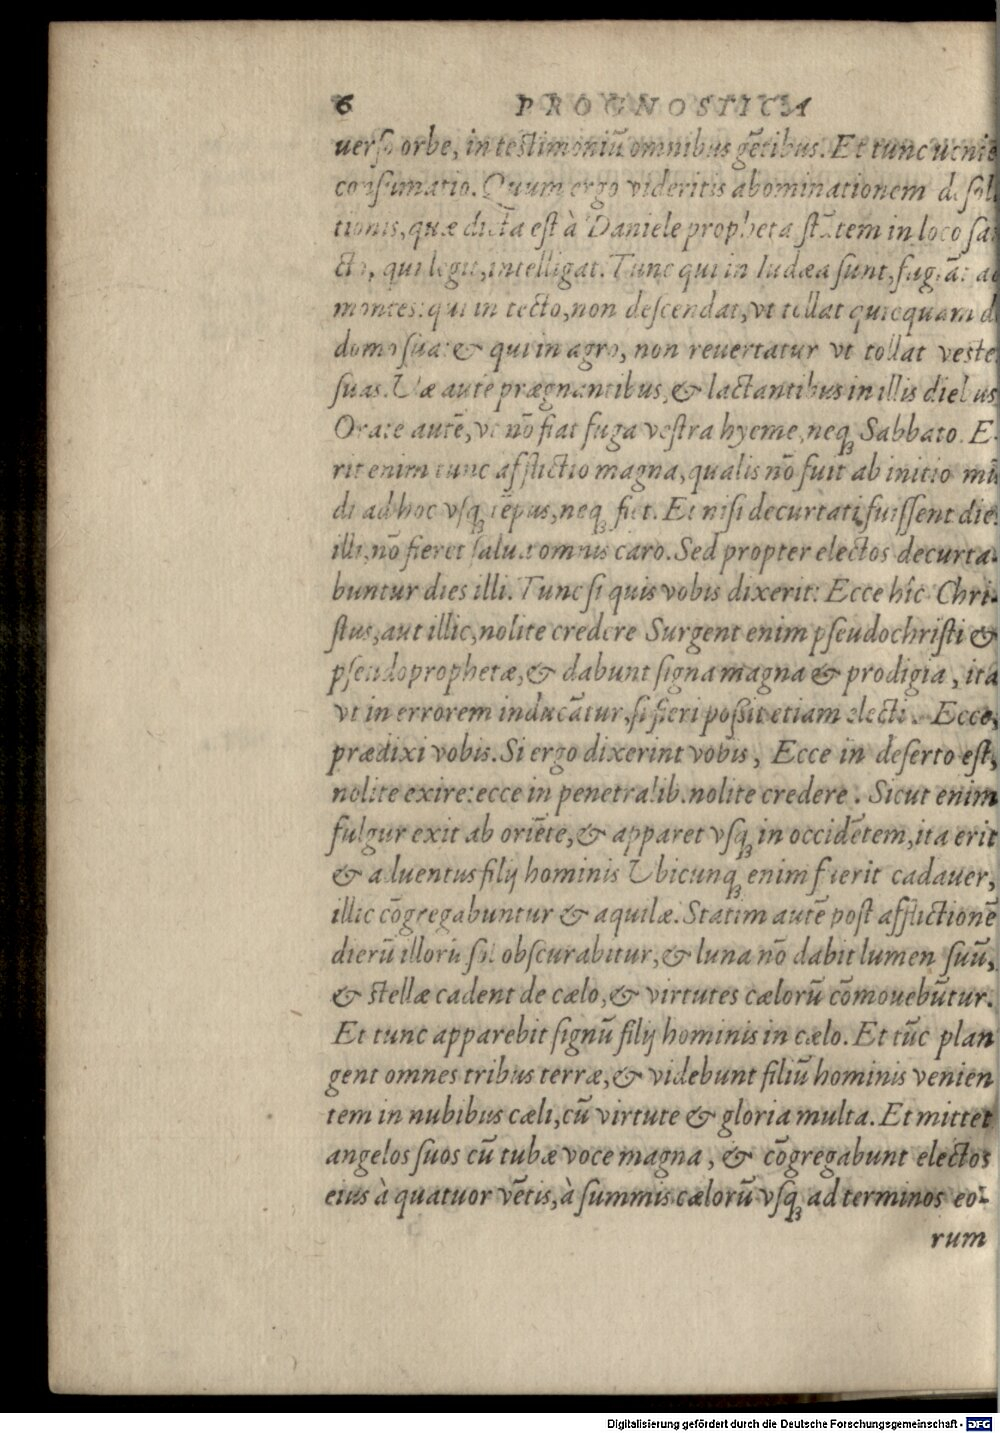 6 PROGNOSTICA
uerso orbe, in testimoniũ omnibus gẽtibus. Et tunc ueniet
consumatio. Quum ergo videritis abominationem desola
tionis, quæ dicta est à Daniele propheta stãtem in loco sa
cto, qui legit, intelligat. Tunc qui in Iudæa sunt, fugiãt ad
montes: qui in tecto, non descendat, vt tollat quicquam de
domo sua: & qui in agro, non reuertatur vt tollat vestes
suas. Væ autẽ prægnantibus, & lactantibus in illis diebus
Orate autẽ, vt nõ fiat fuga vestra hyeme, neqꝫ Sabbato. E-
rit enim tunc afflictio magna, qualis nõ fuit ab initio mũ
di ad hoc vsqꝫ tẽpus, neqꝫ fiet. Et nisi decurtati fuissent dies
illi, nõ fieret salua omnis caro. Sed propter electos decurta-
buntur dies illi. Tunc si quis vobis dixerit: Ecce hîc Chri-
stus, aut illic, nolite credere Surgent enim pseudochristi &
pseudoprophetæ, & dabunt signa magna & prodigia, ita
vt in errorem inducãtur, si fieri possit etiam electi. Ecce,
prædixi vobis. Si ergo dixerint vobis, Ecce in deserto est,
nolite exire: ecce in penetralib. nolite credere. Sicut enim
fulgur exit ab oriẽte, & apparet vsqꝫ in occidẽtem, ita erit
& aduentus filij hominis Vbicunqꝫ enim fuerit cadauer,
illic cõgregabuntur & aquilæ. Statim autẽ post afflictionẽ
dierũ illorũ sol obscurabitur, & luna nõ dabit lumen suũ,
& stellæ cadent de cælo, & virtutes cælorũ cõmouebũtur.
Et tunc apparebit signũ filij hominis in cælo. Et tũc plan
gent omnes tribus terræ, & videbunt filiũ hominis venien
tem in nubibus cæli, cũ virtute & gloria multa. Et mittet
angelos suos cũ tubæ voce magna, & cõgregabunt electos
eius à quatuor vẽtis, à summis cælorũ vsqꝫ ad terminos eo-
rum
Digitalisierung gefördert durch die Deutsche Forschungsgemeinschaft - DFG